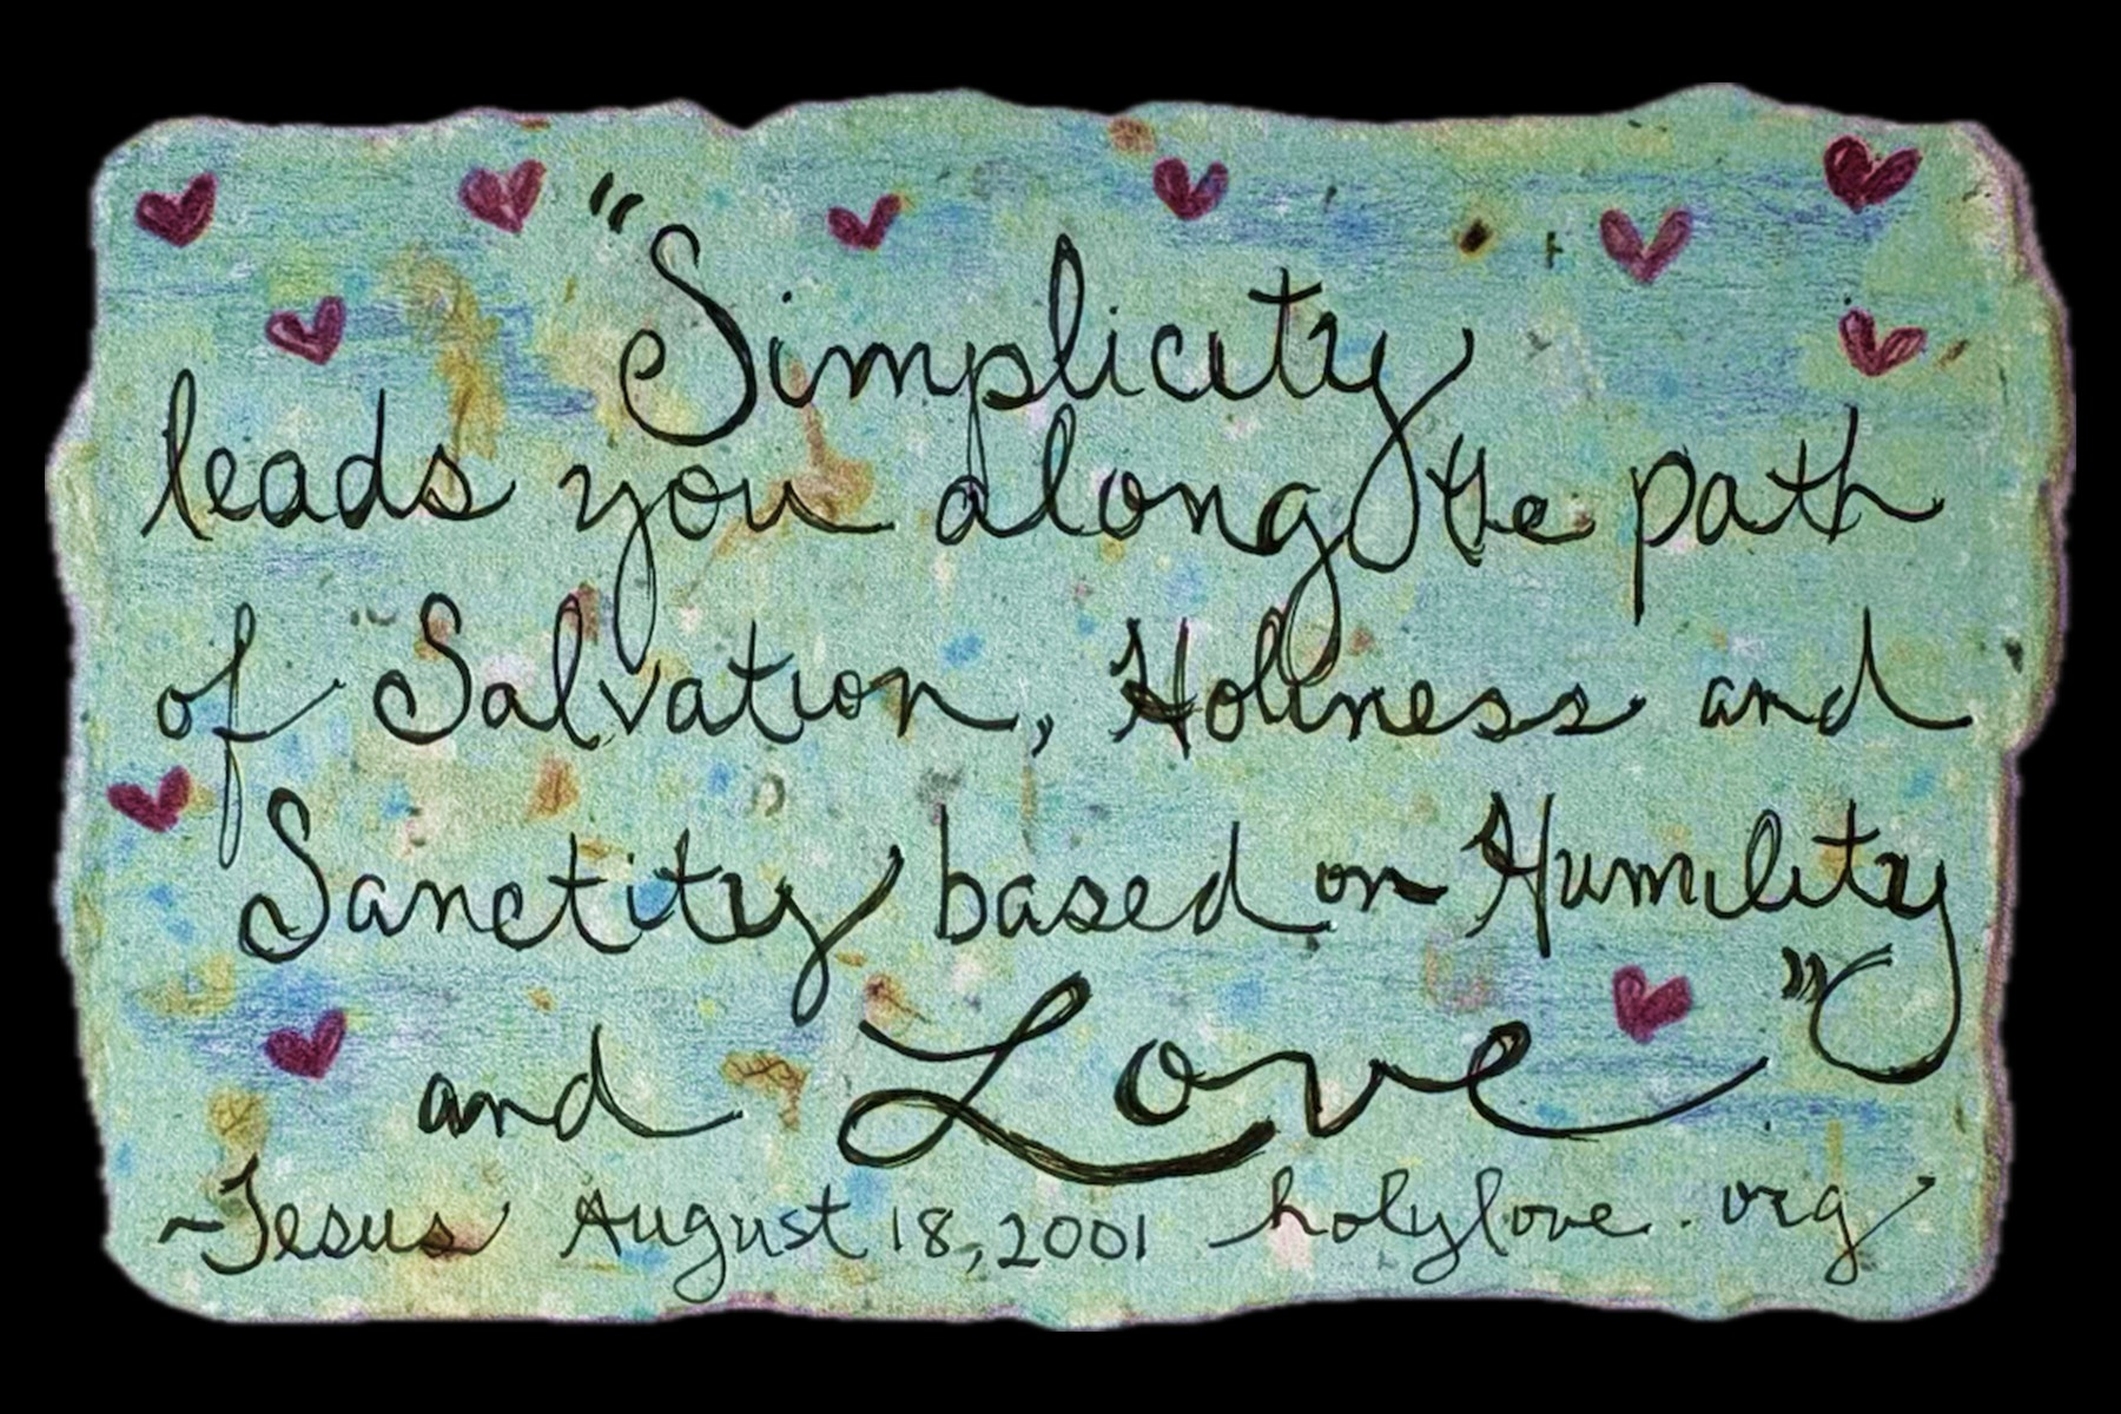 "Simplicity
leads you along the path
of Salvation, Holiness and
Sanctity based on Humility
and Love"
~Jesus August 18, 2001 holylove.org